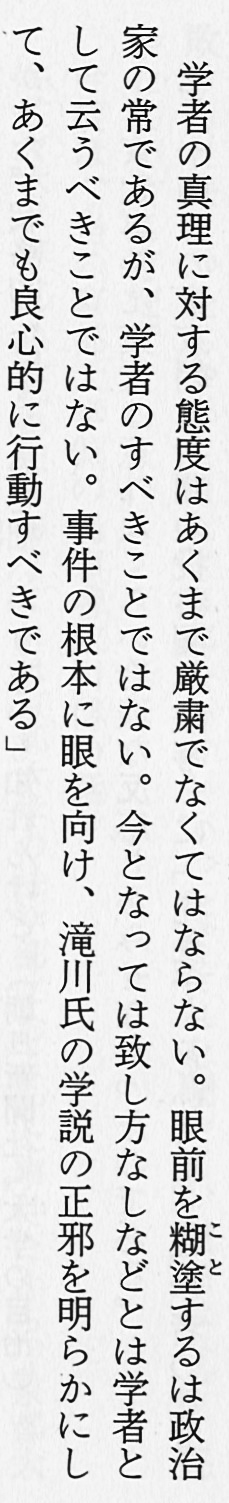 学者の真理に対する態度はあくまで厳粛でなくてはならない。眼前を糊塗するは政治
家の常であるが、学者のすべきことではない。今となっては致し方なしなどとは学者と
して云うべきことではない。事件の根本に眼を向け、滝川氏の学説の正邪を明らかにし
て、あくまでも良心的に行動すべきである」
こと